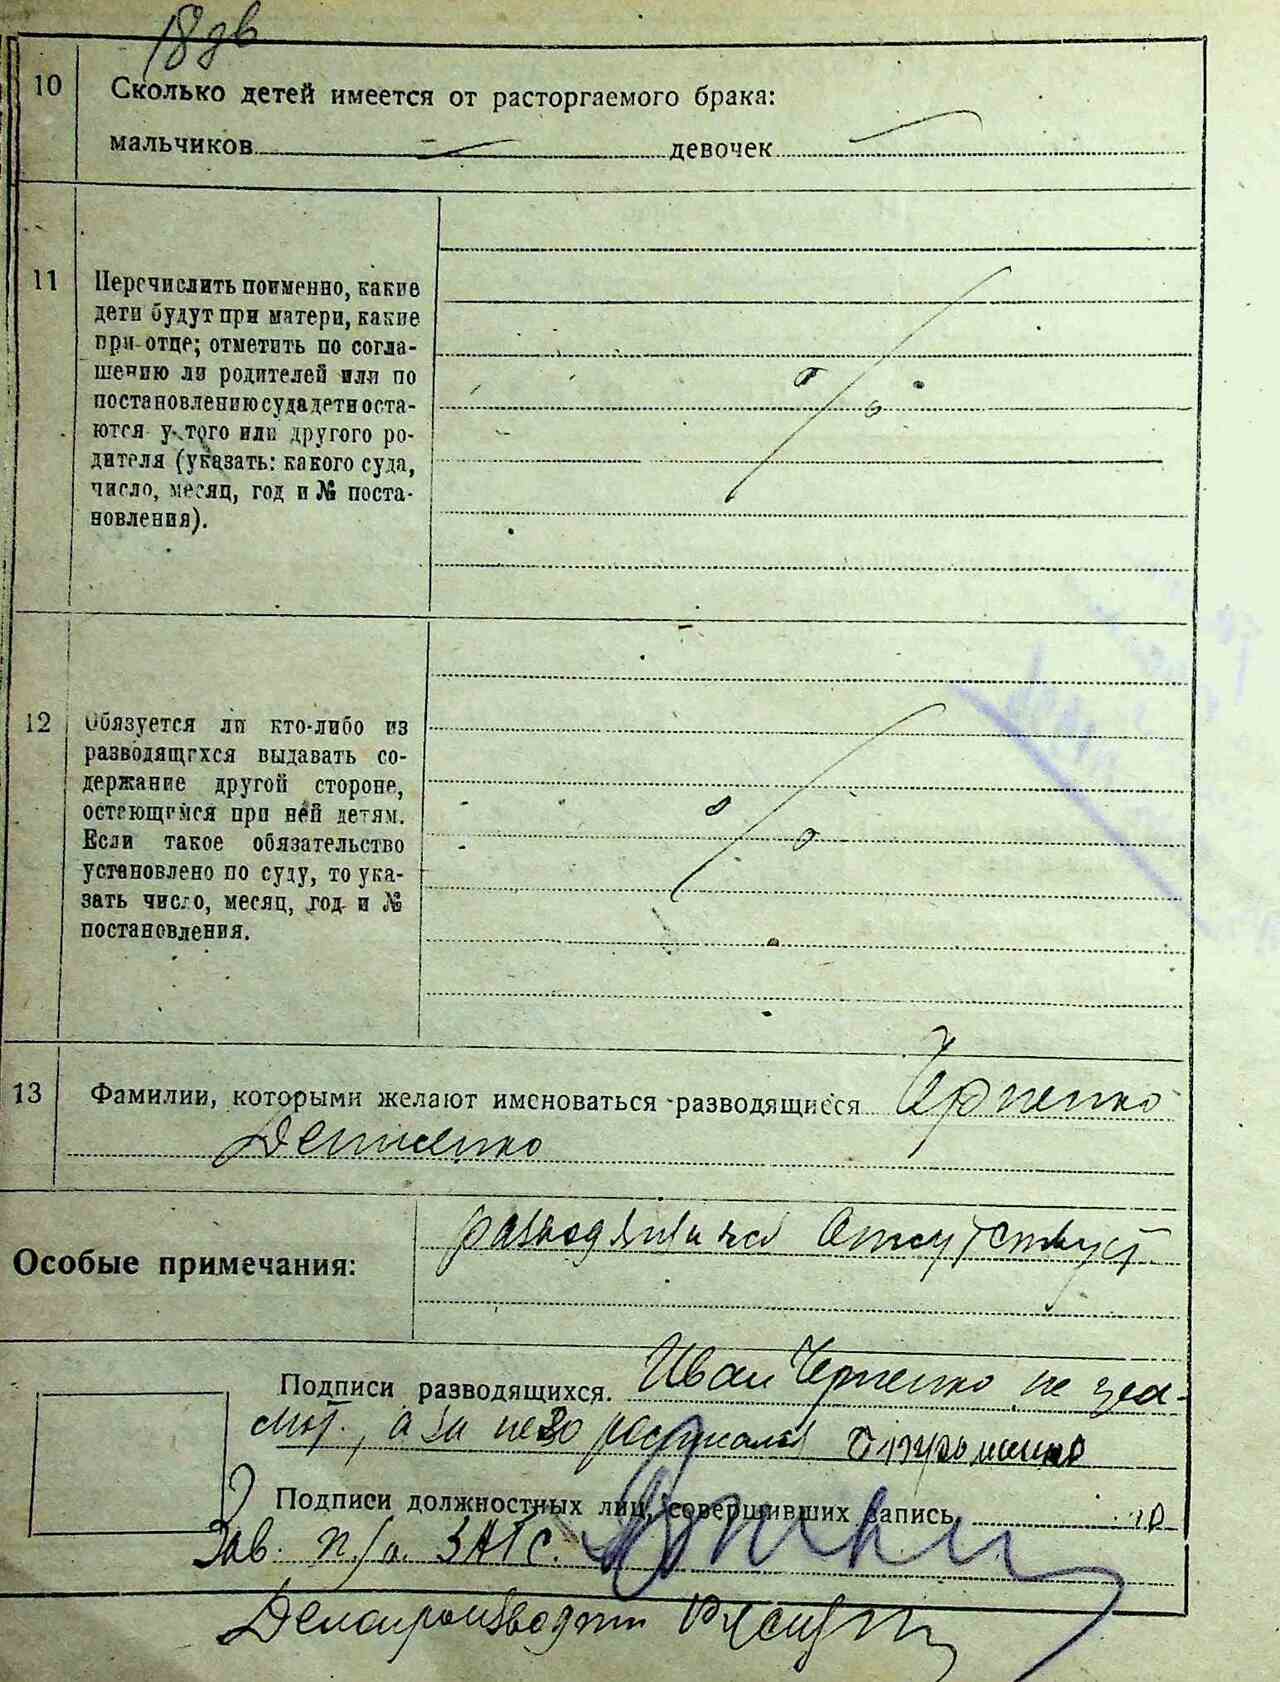 18 дв
10 Сколько детей имеется от расторгаемого брака:
мальчиков — девочек —
11 Перечислить поименно, какие
дети будут при матери, какие
при отце; отметить по согла-
шению ли родителей или по
постановлению суда дети оста-
ются у того или другого ро-
дителя (указать: какого суда,
число, месяц, год и № поста-
новления).
12 Обязуется ли кто-либо из
разводящихся выдавать со-
держание другой стороне,
остающимся при ней детям.
Если такое обязательство
установлено по суду, то ука-
зать число, месяц, год и №
постановления.
13 Фамилии, которыми желают именоваться разводящиеся Черненко
Деш­ченко
Особые примечания: разводящийся отсутствует
Подписи разводящихся. Иван Черненко не гра-
мот., а за него росписался
Подписи должностных лиц, совершивших запись
Зав. п/о. ЗАГС.
Делопроизводит